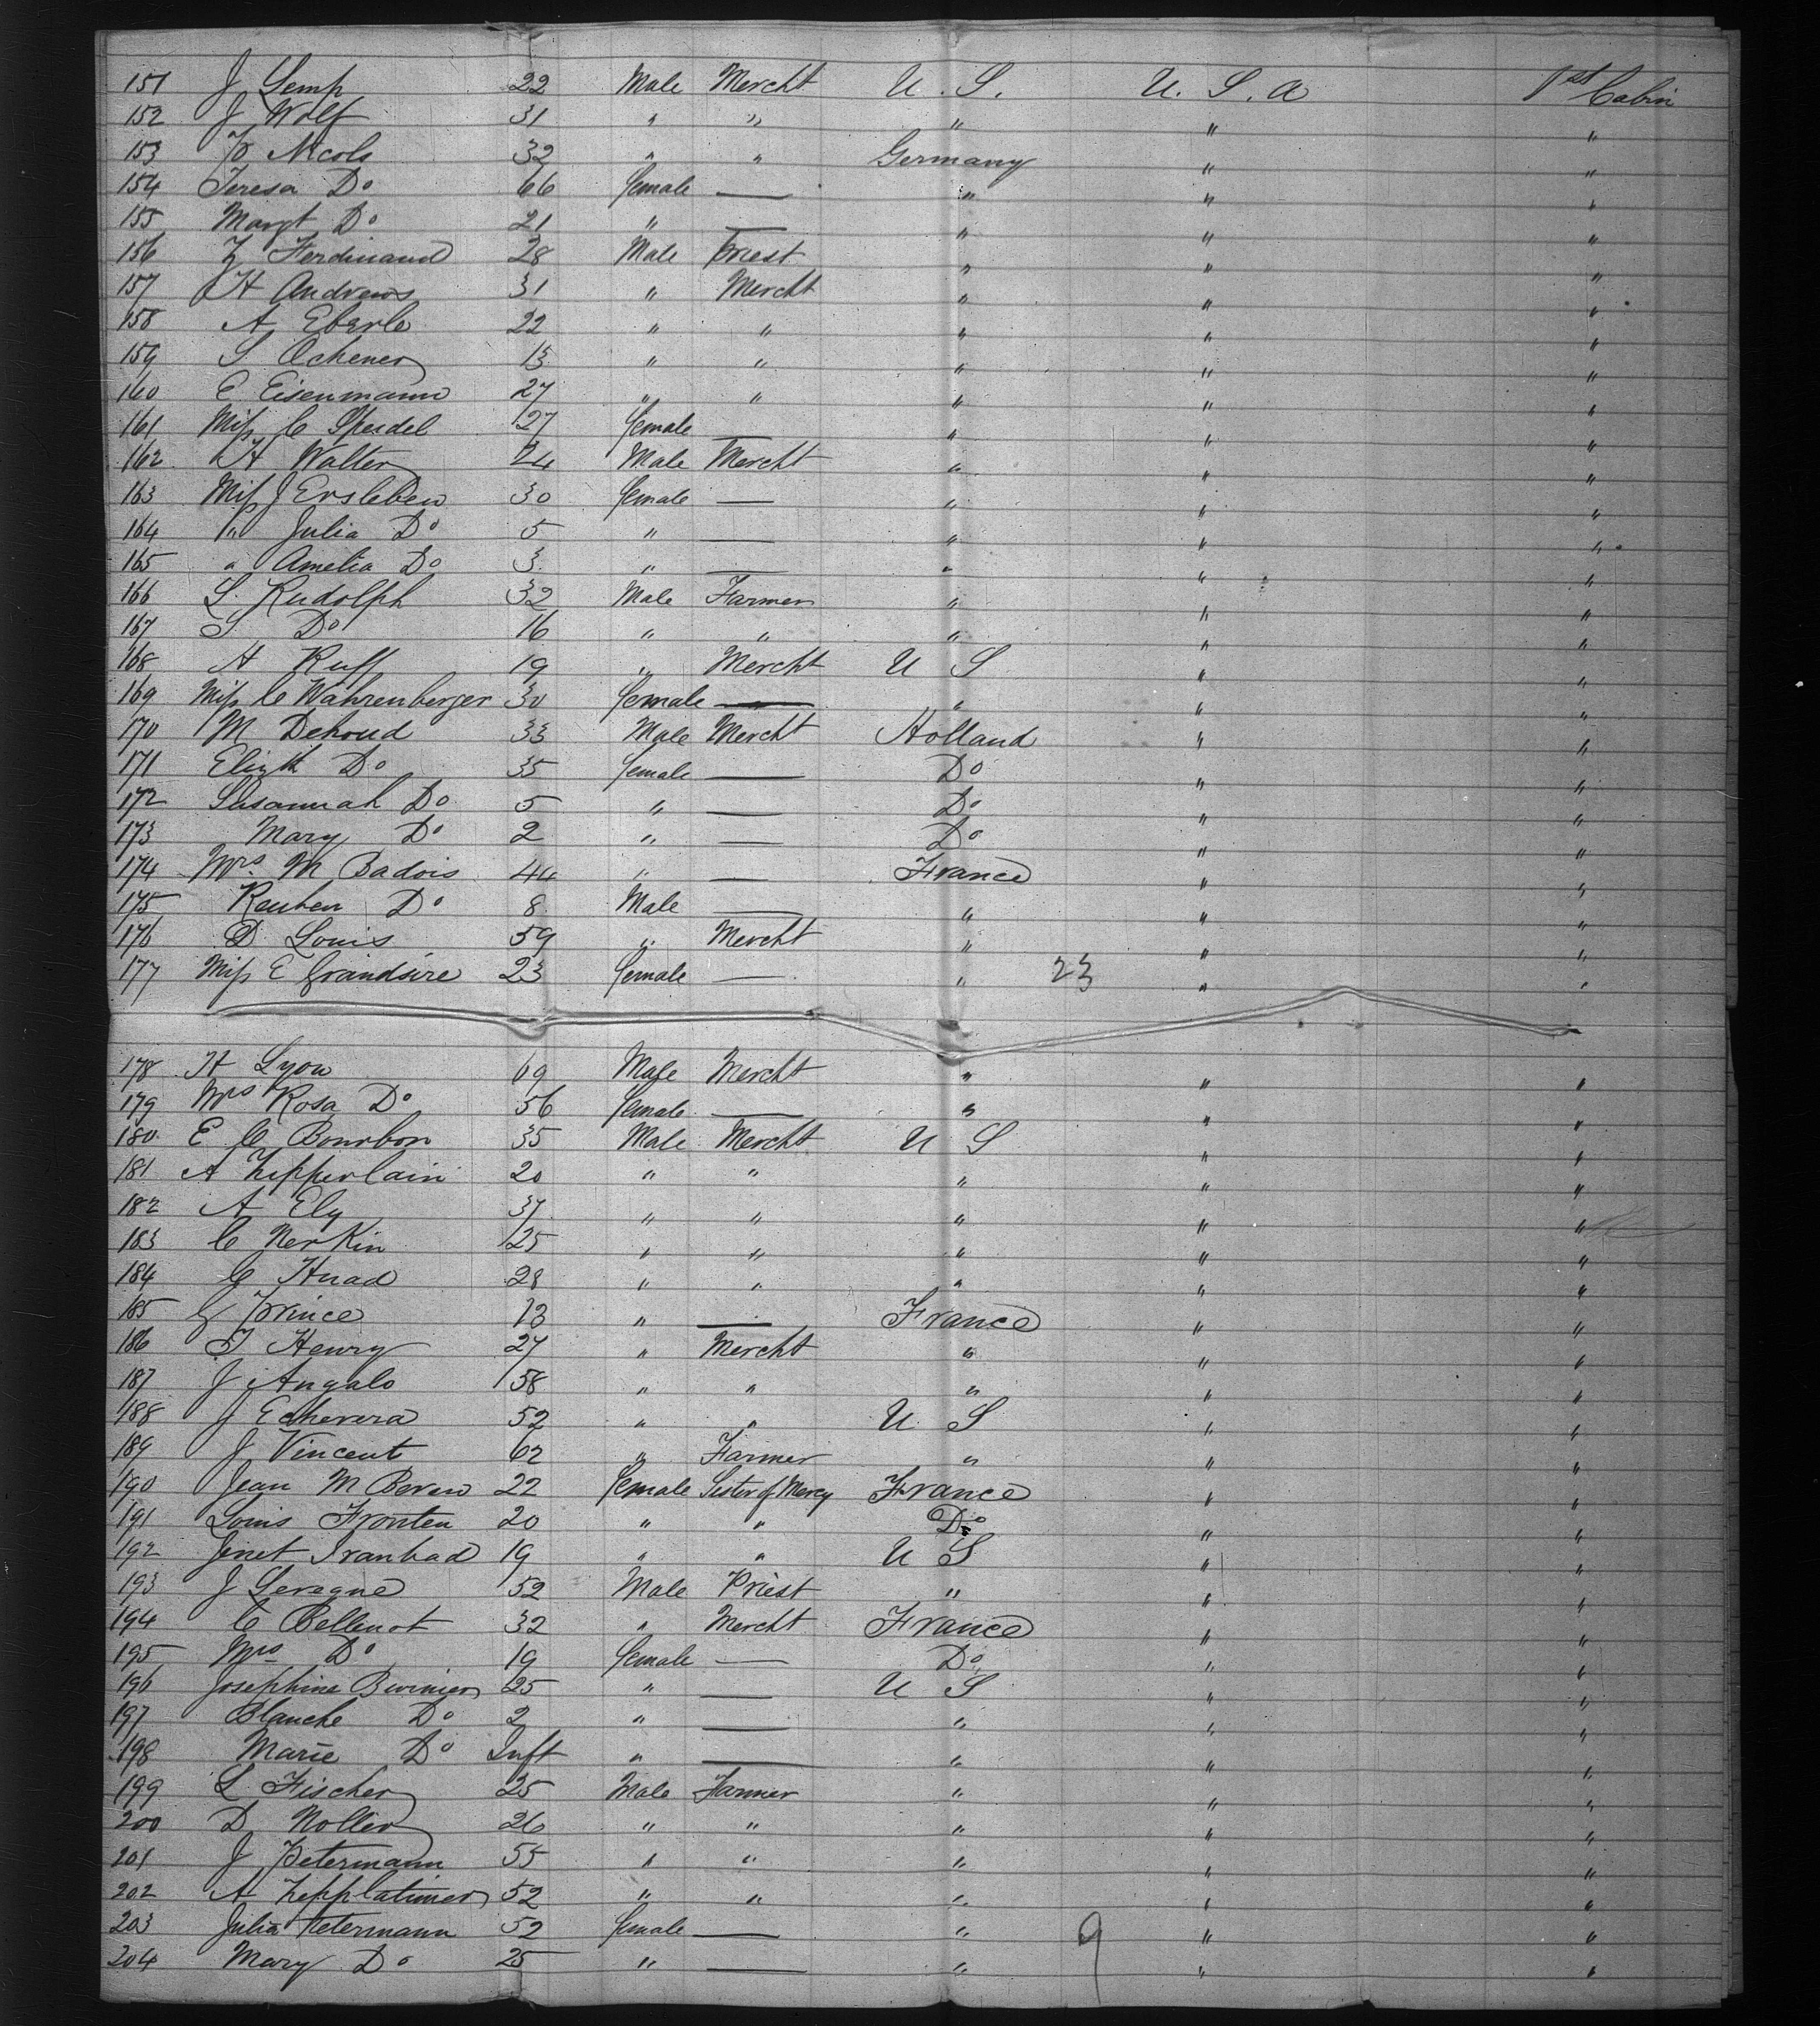 151 J Lemp 22 Male Mercht U. S. U. S. A 1st Cabin
152 J Wolf 31 " " " " "
153 P Nicols 32 " " Germany " "
154 Teresa Do 66 female — " " "
155 Margt Do 21 " — " " "
156 Z Ferdinand 28 Male Priest " " "
157 H Andrews 31 " Mercht " " "
158 A Eberle 22 " " " " "
159 S Ochener 13 " " " " "
160 E Eisenmann 27 " " " " "
161 Miss C Speidel 27 female — " " "
162 H Walter 24 Male Mercht " " "
163 Miss J Ersleben 30 female — " " "
164 " Julia Do 5 " — " " "
165 " Amelia Do 3 " — " " "
166 L. Rudolph 32 Male Farmer " " "
167 S Do 16 " " " " "
168 A Ruff 19 " Mercht U S " "
169 Miss C Wahrenberger 30 female — " " "
170 M Dehoud 33 Male Mercht Holland " "
171 Elizth Do 35 female — Do " "
172 Susannah Do 5 " — Do " "
173 Mary Do 2 " — Do " "
174 Mrs. M Badois 44 " — France " "
175 Reuben Do 8 Male — " " "
176 D Louis 59 " Mercht " " "
177 Miss E Grandsire 23 female — " 23 " "
178 H Lyon 69 Male Mercht " " "
179 Mrs Rosa Do 56 female — " " "
180 E C Bourbon 35 Male Mercht U S " "
181 A Zepperlain 20 " " " " "
182 A Ely 37 " " " " "
183 C Nerkin 25 " " " " "
184 C Huad 28 " " " " "
185 G Prince 13 " — France " "
186 T Henry 27 " Mercht " " "
187 J Angalo 58 " " " " "
188 J Echevera 52 " " U S " "
189 J Vincent 62 " Farmer " " "
190 Jean M Beren 22 female Sister of Mercy France " "
191 Louis Fronten 20 " " Do " "
192 Jenet Tranbad 19 " " U S " "
193 J Leragne 52 Male Priest " " "
194 C Bellenot 32 " Mercht France " "
195 Mrs Do 19 female — Do " "
196 Josephine Bwinier 25 " — U S " "
197 Blanche Do 2 " — " " "
198 Marie Do Inft " — " " "
199 L Fischer 25 Male Farmer " " "
200 D Noller 26 " " " " "
201 J Petermann 55 " " " " "
202 A Zepplatimer 52 " " " " "
203 Julia Petermann 52 female — " 9 " "
204 Mary Do 25 " — " " "